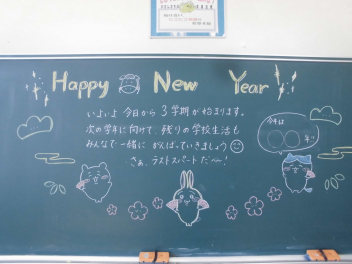 Happy New Year
いよいよ今日から3学期が始まります。
次の学年に向けて、残りの学校生活も
みんなで一緒にがんばっていきましょう
さぁ、ラストスパートだべー!
今年は